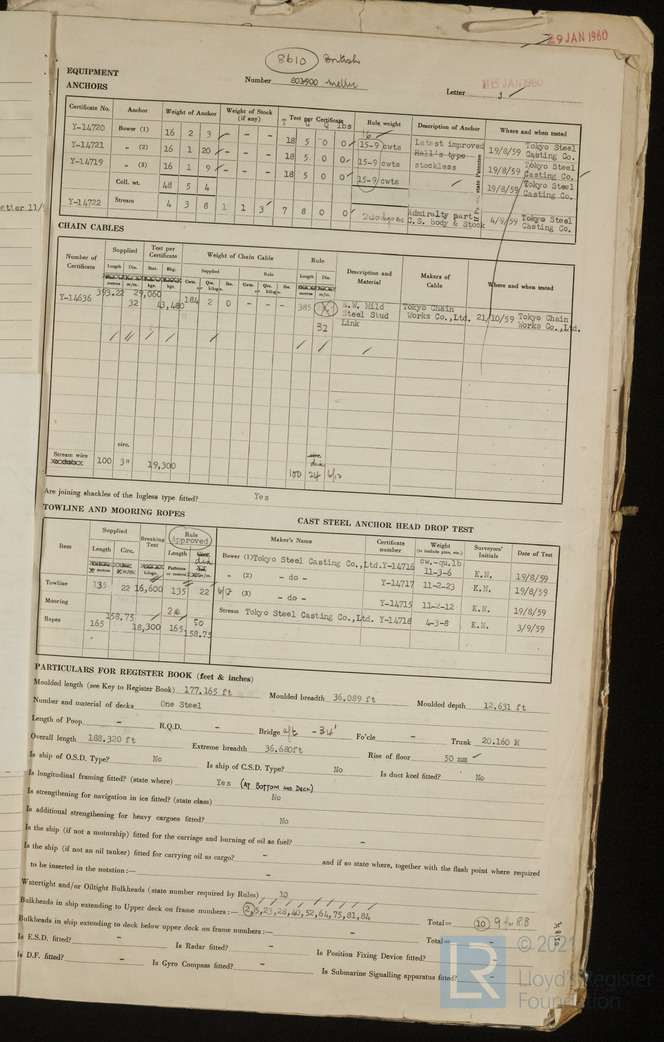 29 JAN 1960
8610 British
EQUIPMENT Number 803900 metric Letter
15 JAN 1960
ANCHORS
Certificate No. Anchor Weight of Anchor Weight of Stock (if any) Test per Certificate Rule weight Description of Anchor Where and when tested
T C Q lbs
Y-14720 Bower (1) 16 2 3 - - 18 5 0 0 15-9 cwts Latest improved 19/8/59 Tokyo Steel Casting Co.
Y-14721 „ (2) 16 1 20 - - 18 5 0 0 15-9 cwts Hall's type stockless 19/8/59 Tokyo Steel Casting Co.
Y-14719 „ (3) 16 1 9 - - 18 5 0 0 15-9 cwts 19/8/59 Tokyo Steel Casting Co.
Coll. wt. 48 5 4
Y-14722 Stream 4 3 8 1 1 3 7 8 0 0 Admiralty part C.S. body & Stock 4/9/59 Tokyo Steel Casting Co.
etter 11/
CHAIN CABLES
Number of Certificate Supplied Test per Certificate Weight of Chain Cable Rule Description and Material Makers of Cable Where and when tested
Length Dia. Stat. Bkg. Supplied Rule Length Dia.
metres m/m. kgs. kgs. Cwts. Qrs. lbs. Cwts. Qrs. lbs. metres m/m.
Y-14636 393.22 32 29,060 43,480 184 2 0 - - - 385 32 S.W. Mild Steel Stud Link Tokyo Chain Works Co.,Ltd. 21/10/59 Tokyo Chain Works Co.,Ltd.
circ. dia
Stream wire 100 3" 19,300 100 24 6/12
Are joining shackles of the lugless type fitted? Yes
TOWLINE AND MOORING ROPES CAST STEEL ANCHOR HEAD DROP TEST
Item Supplied Breaking Test Rule Approved Maker's Name Certificate number Weight (to include pins, etc.) Surveyors' Initials Date of Test
Length Circ. Length dia
cw.-qu.lb
Bower (1) Tokyo Steel Casting Co.,Ltd. Y-14716 11-3-6 K.N. 19/8/59
Towline 135 22 16,600 135 22 6/12 „ (2) - do - Y-14717 11-2-23 K.N. 19/8/59
(3) - do - Y-14715 11-2-12 K.N. 19/8/59
Mooring Ropes 165 158.75 18,300 165 50 158.75 Stream Tokyo Steel Casting Co.,Ltd. Y-14718 4-3-8 K.N. 3/9/59
PARTICULARS FOR REGISTER BOOK (feet & inches)
Moulded length (see Key to Register Book) 177.165 ft Moulded breadth 36.089 ft Moulded depth 12.631 ft
Number and material of decks One Steel
Length of Poop - R.Q.D. - Bridge aft -34' Fo'cle - Trunk 20.160 M
Overall length 188.320 ft Extreme breadth 36.680ft Rise of floor 50 mm
Is ship of O.S.D. Type? No Is ship of C.S.D. Type? No Is duct keel fitted? No
Is longitudinal framing fitted? (state where) Yes (AT BOTTOM AND DECK)
Is strengthening for navigation in ice fitted? (state class) No
Is additional strengthening for heavy cargoes fitted? No
Is the ship (if not a motorship) fitted for the carriage and burning of oil as fuel? -
Is the ship (if not an oil tanker) fitted for carrying oil as cargo? - and if so state where, together with the flash point where required
to be inserted in the notation :— -
Watertight and/or Oiltight Bulkheads (state number required by Rules) 10
Bulkheads in ship extending to Upper deck on frame numbers :— 2,5,23,28,40,52,64,75,81,84 Total= 10 9 for R.B
Bulkheads in ship extending to deck below upper deck on frame numbers :— - Total= -
Is E.S.D. fitted? - Is Radar fitted? - Is Position Fixing Device fitted? -
Is D.F. fitted? - Is Gyro Compass fitted? - Is Submarine Signalling apparatus fitted? -
© 2021
LR
Lloyd's Register
Foundation